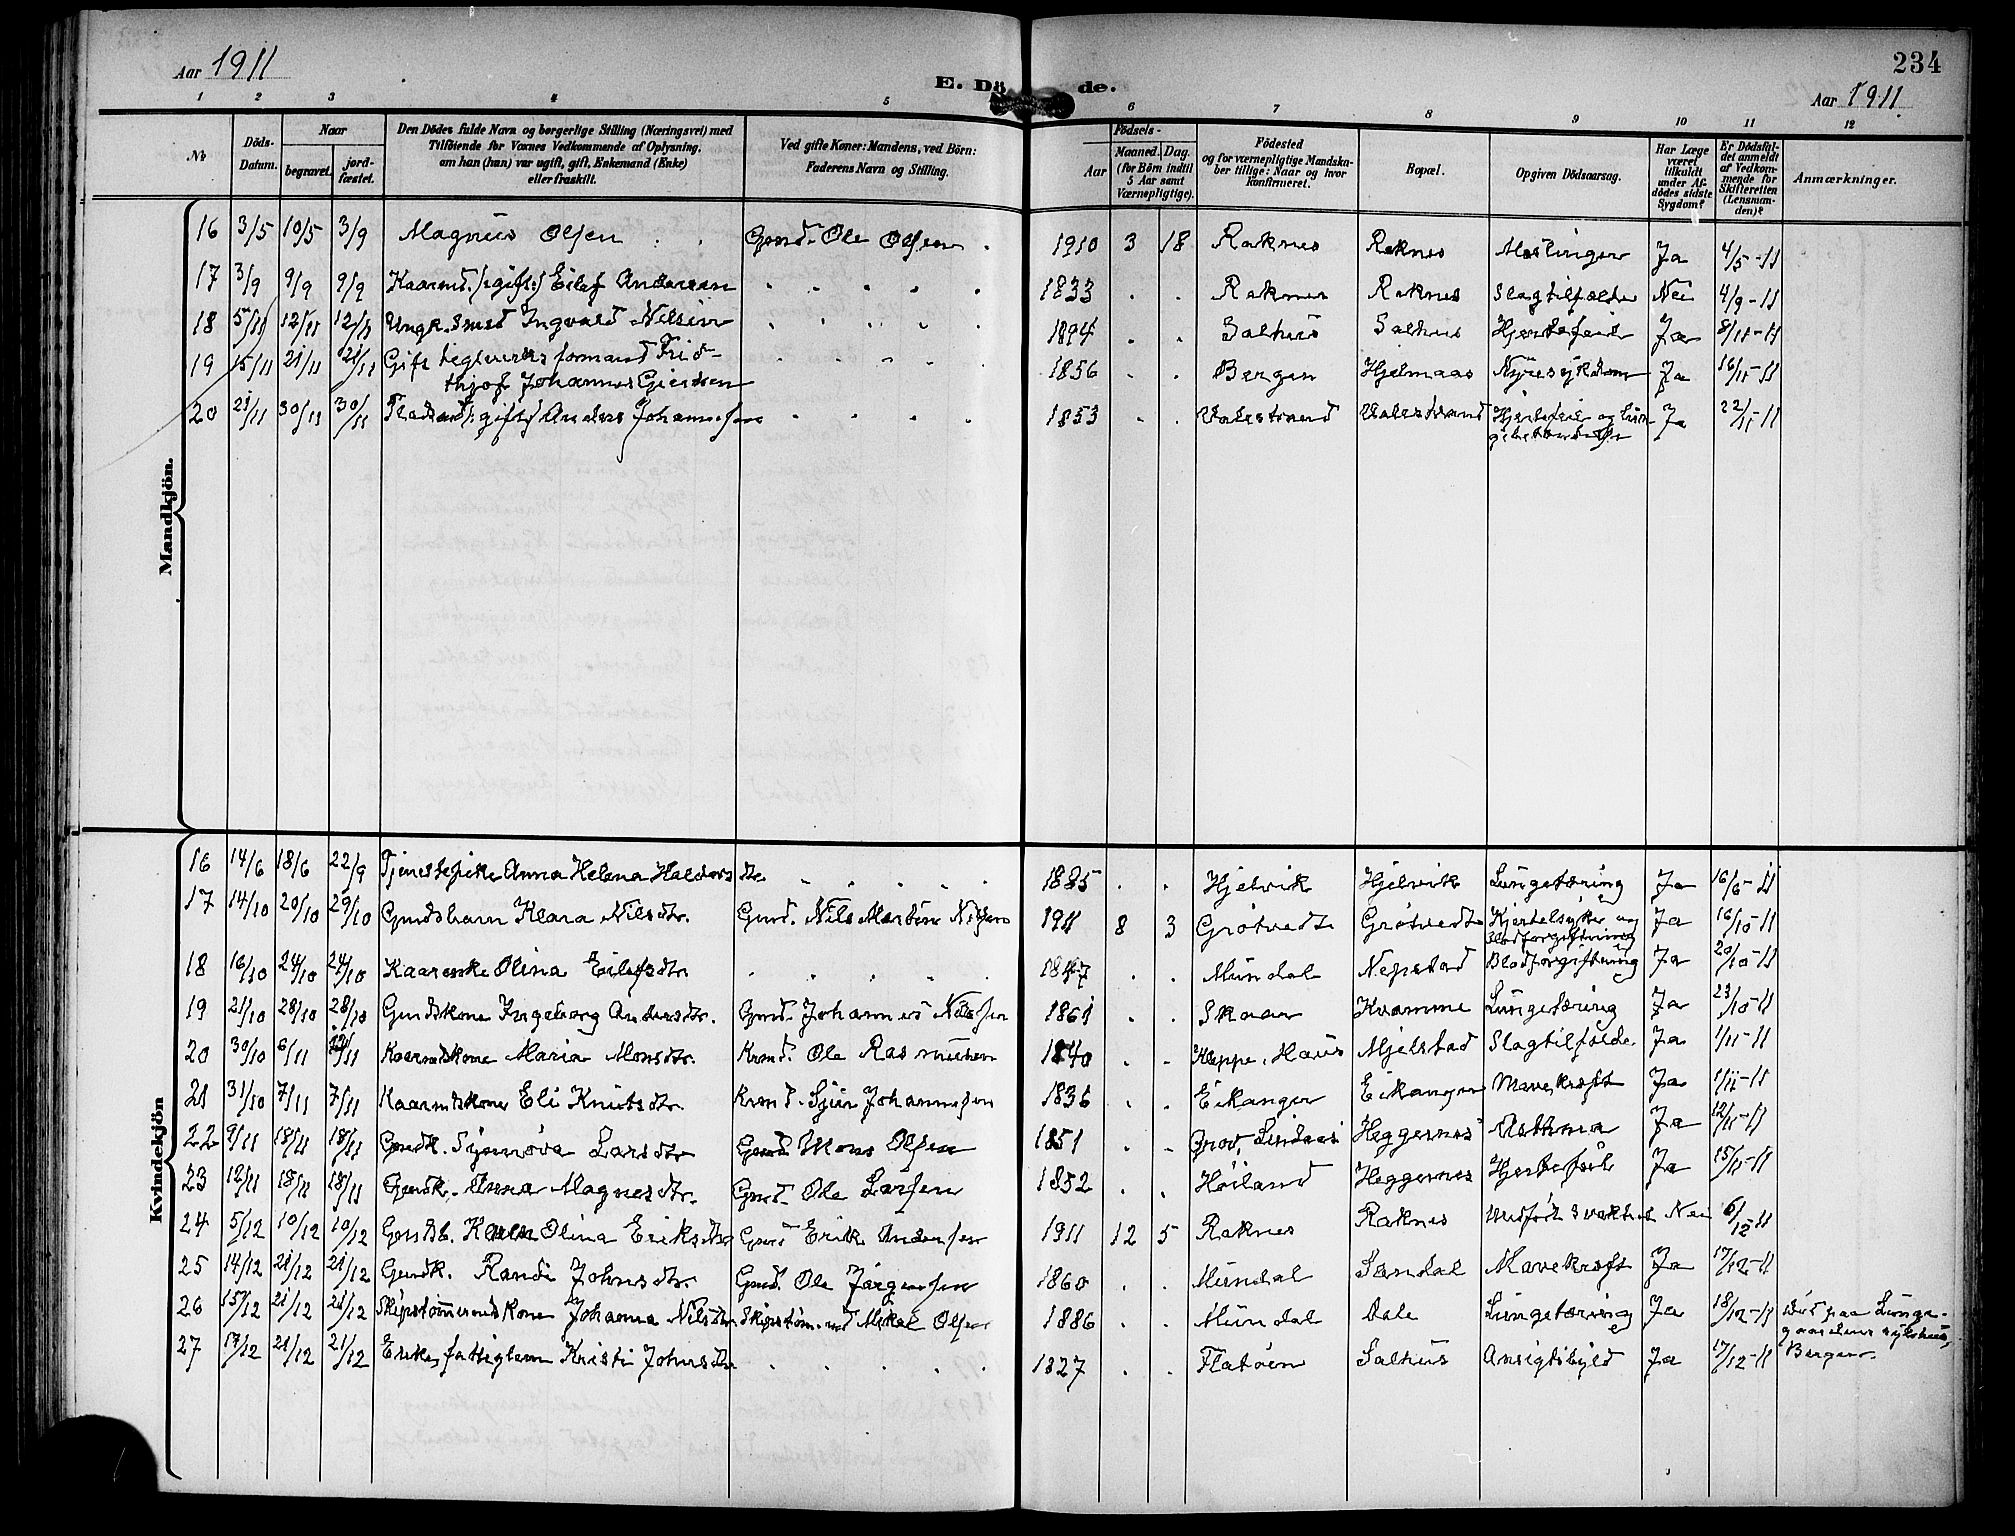 Aar 1911
E. Döde.
234
Aar 1911
1 2 3 4 5 6 7 8 9 10 11 12
No
Döds-Datum.
Naar
begravet.
jord-fæstet.
Den Dödes fulde Navn og borgerlige Stilling (Næringsvei) med
Tilföiende for Voxnes Vedkommende af Oplysning,
om han (hun) var ugift, gift, Enkemand (Enke)
eller fraskilt.
Ved gifte Koner: Mandens, ved Börn:
Faderens Navn og Stilling.
Födsels-
Aar
Maaned.
Dag.
(for Börn indtil
5 Aar samt
Værnepligtige).
Födested
og for værnepligtige Mandska-
ber tillige: Naar og hvor
konfirmeret.
Bopæl.
Opgiven Dödsaarsag.
Har Læge
været
tilkaldt
under Af-
dödes sidste
Sygdom?
Er Dödsfal-
det anmeldt
af Vedkom-
mende for
Skifteretten
(Lensman-
den)?
Anmærkninger.
Mandkjön.
16 3/5 10/5 3/9 Magnus Olsen Gmd. Ole Olsen 1910 3 18 Raknes Raknes Meslinger Ja 4/5-11
17 3/9 9/9 9/9 Kaarmd. (gift) Eilef Andersen 1833 Raknes Raknes Slagtilfælde Nei 4/9-11
18 5/11 12/11 12/11 Ungk. smed Ingvald Nilsen 1894 Salhus Salhus Hjertefeil Ja 8/11-11
19 15/11 21/11 21/11 Gift teglverksformand Frid-
thjof Johannes Giertsen 1856 Bergen Hjelmaas Nyresykdom Ja 16/11-11
20 21/11 30/11 30/11 (gift) Anders Johannesen 1853 Valestrand Valestrand Hjertefeil og Lun-
gebetændelse Ja 22/11-11
Kvindekjön
16 14/6 18/6 22/9 Tjenestepike Anna Helena Haldorsdtr. 1885 Hjelvik Hjelvik Lungetæring Ja 16/6-11
17 14/10 20/10 29/10 Gmdsbarn Klara Nilsdtr. Gmd. Nils Martin Nilsen 1911 8 3 Grötvedt Grötvedt Kjertelsyke og
Blodforgiftning Ja 16/10-11
18 16/10 24/10 24/10 Kaarenke Olina Eilefsdtr. 1847 Mundal Nepstad Blodforgiftning Ja 20/10-11
19 21/10 28/10 28/10 Gmdskone Ingeborg Andersdtr. Gmd. Johannes Nilssen 1861 Skaar Kvamme Lungetæring Ja 23/10-11
20 30/10 6/11 Kaarmdskone Maria Monsdtr. Krmd. Ole Rasmussen 1840 Kleppe, Haus Mjelstad Slagtilfælde Ja 1/11-11
21 31/10 7/11 7/11 Kaarmdskone Eli Knutsdtr. Krmd. Sjur Johannesen 1836 Eikanger Eikanger Mavekræft Ja 1/11-11
22 9/11 18/11 18/11 Gmdk. Synnöva Larsdtr Gmd. Mons Olsen 1851 Lindaas Heggernes Asthma Ja 12/11-11
23 12/11 18/11 18/11 Gmdk. Anna Magnesdtr. Gmd. Ole Larsen 1852 Höiland Heggernes Hjertefeil Ja 15/11-11
24 5/12 10/12 10/12 Gmdsb. Karen Olina Eriksdtr Gmd Erik Andersen 1911 12 5 Raknes Raknes Medfödt svakhed Nei 6/12-11
25 14/12 21/12 21/12 Gmdk. Randi Johnsdtr. Gmd. Ole Jörgensen 1860 Mundal Sandal Mavekræft Ja 17/12-11
26 15/12 21/12 21/12 Skipstömmermdskone Johanna Nilsdtr Skipstöm.md Mikal Olsen 1886 Mundal Dale Lungetæring Ja 18/12-11 Död paa Lunge-
gaardens sykehus,
Bergen.
27 17/12 21/12 21/12 Enke, fattiglem Kristi Johnsdtr 1827 Flatöen Salhus Ansigtsbyld Ja 17/12-11